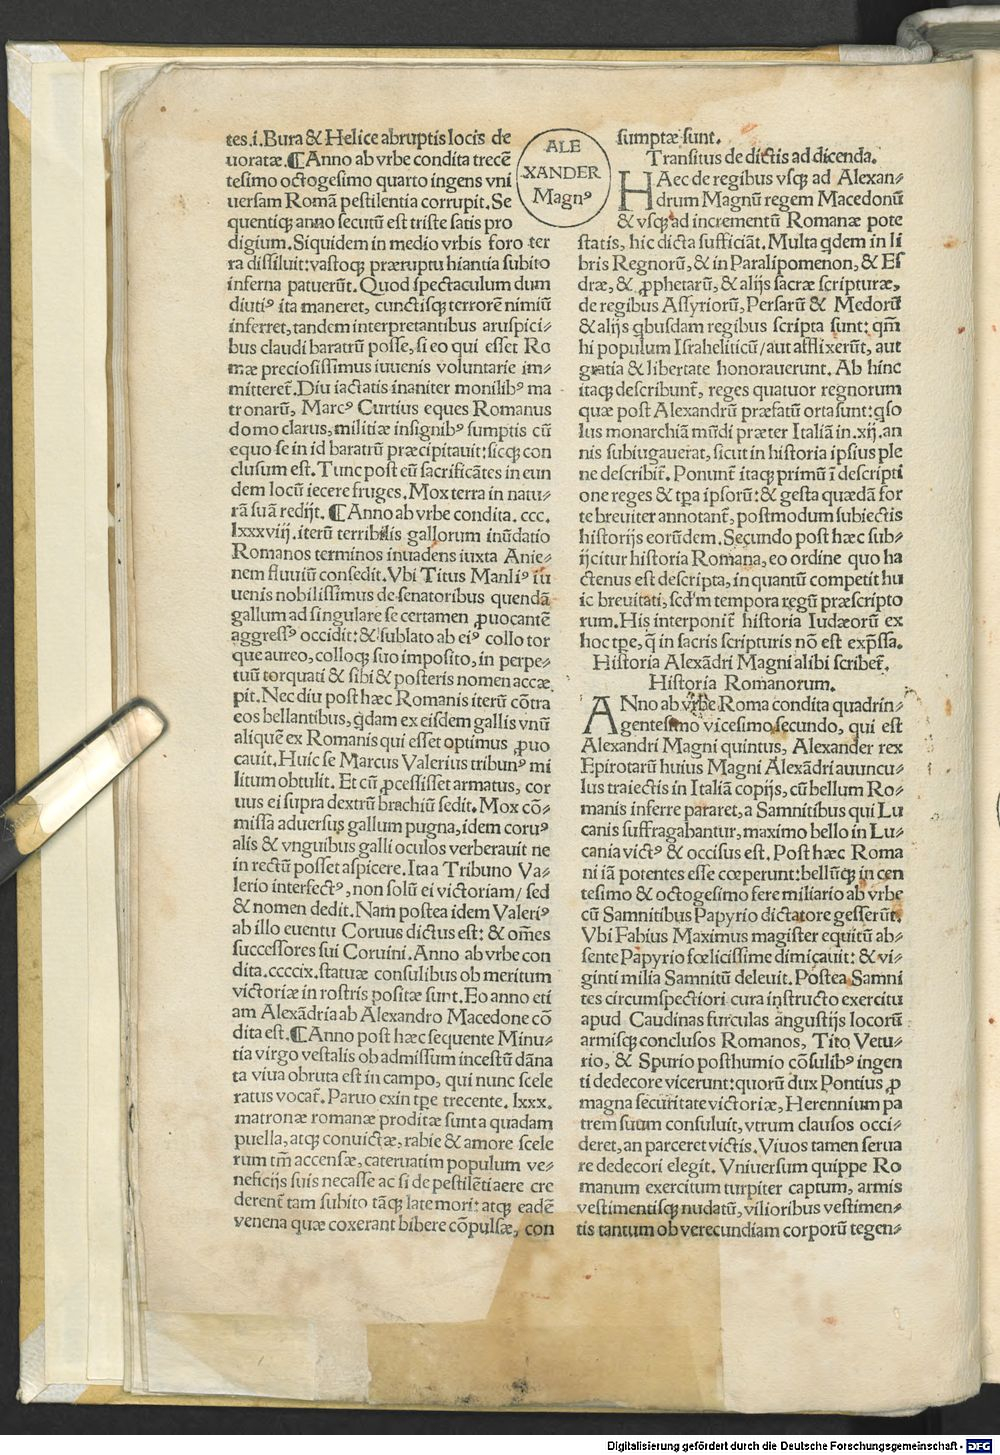 tes.i. Bura & Helice abruptis locis de
uoratæ. ¶ Anno ab vrbe condita trecē
tesimo octogesimo quarto ingens vni
uersam Romā pestilentia corrupit. Se
quentiqꝫ anno secutū est triste satis pro
digium. Siquidem in medio vrbis foro ter
ra dissiluit: vastoqꝫ præruptu hiantia subito
inferna patuerūt. Quod spectaculum dum
diutiꝰ ita maneret, cunctisqꝫ terrorē nimiū
inferret, tandem interpretantibus aruspici⸗
bus claudi baratrū posse, si eo qui esset Ro
mæ preciosissimus iuuenis voluntarie im⸗
mitteret̄. Diu iactatis inaniter monilibꝰ ma
tronarū, Marcꝰ Curtius eques Romanus
domo clarus, militiæ insignibꝰ sumptis cū
equo se in id baratrū præcipitauit: sicqꝫ con
clusum est. Tunc post eū sacrificātes in eun
dem locū iecere fruges. Mox terra in natu⸗
rā suā redijt. ¶ Anno ab vrbe condita. ccc.
lxxxviij. iterū terribilis gallorum inūdatio
Romanos terminos inuadens iuxta Anie⸗
nem fluuiū consedit. Vbi Titus Manliꝰ iu
uenis nobilissimus de senatoribus quendā
gallum ad singulare se certamen ꝓuocantē
aggressꝰ occidit: & sublato ab eiꝰ collo tor
que aureo, colloqꝫ suo imposito, in perpe⸗
tuū torquati & sibi & posteris nomen accæ
pit. Nec diu post hæc Romanis iterū cōtra
eos bellantibus, q̇dam ex eisdem gallis vnū
aliquē ex Romanis qui esset optimus ꝓuo
cauit. Huic se Marcus Valerius tribunꝰ mi
litum obtulit. Et cū ꝓcessisset armatus, cor
uus ei supra dextrū brachiū sedit. Mox cō⸗
missa aduersus gallum pugna, idem coruꝰ
alis & vnguibus galli oculos verberauit ne
in rectū posset aspicere. Ita a Tribuno Va⸗
lerio interfectꝰ, non solū ei victoriam/ sed
& nomen dedit. Nam postea idem Valeriꝰ
ab illo euentu Coruus dictus est: & om̄es
successores sui Coruini. Anno ab vrbe con
dita. ccccix. statuæ consulibus ob meritum
victoriæ in rostris positæ sunt. Eo anno eti
am Alexādria ab Alexandro Macedone cō
dita est. ¶ Anno post hæc sequente Minu⸗
tia virgo vestalis ob admissum incestū dāna
ta viua obruta est in campo, qui nunc scele
ratus vocat̄. Paruo exin tp̄e trecente. lxxx.
matronæ romanæ proditæ sunt a quadam
puella, atqꝫ conuictæ, rabie & amore scele
rum tm̄ accensæ, cateruatim populum ve⸗
neficijs suis necasse ac si de pestilēti aere cre
derent̄ tam subito tāqꝫ late mori: atqꝫ eadē
venena quæ coxerant bibere cōpulsæ, con
ALE
XANDER
Magnꝰ
sumptæ sunt.
Transitus de dictis ad dicenda.
HAec de regibus vsqꝫ ad Alexan⸗
drum Magnū regem Macedonū
& vsqꝫ ad incrementū Romanæ pote
statis, hic dicta sufficiāt. Multa q̇dem in li
bris Regnorū, & in Paralipomenon, & Es
dræ, & ꝓphetarū, & alijs sacræ scripturæ,
de regibus Assyriorū, Persarū & Medorū
& alijs q̇busdam regibus scripta sunt: qm̄
hi populum Israheliticū/ aut afflixerūt, aut
gratia & libertate honorauerunt. Ab hinc
itaqꝫ describunt̄, reges quatuor regnorum
quæ post Alexandrū præfatū orta sunt: q̇ so
lus monarchiā mūdi præter Italiā in. xij. an
nis subiugauerat, sicut in historia ipsius ple
ne describit̄. Ponunt̄ itaqꝫ primū ī descripti
one reges & tp̄a ipsorū: & gesta quædā for
te breuiter annotant̄, postmodum subiectis
historijs eorūdem. Secundo post hæc sub⸗
ijcitur historia Romana, eo ordine quo ha
ctenus est descripta, in quantū competit hu
ic breuitati, scd'm tempora regū præscripto
rum. His interponit̄ historia Iudæorū ex
hoc tp̄e, q̄ in sacris scripturis nō est exp̄ssa.
Historia Alexādri Magni alibi scribet̄.
Historia Romanorum.
ANno ab vrbe Roma condita quadrin⸗
gentesimo vicesimo secundo, qui est
Alexandri Magni quintus, Alexander rex
Epirotarū huius Magni Alexādri auuncu⸗
lus traiectis in Italiā copijs, cū bellum Ro⸗
manis inferre pararet, a Samnitibus qui Lu
canis suffragabantur, maximo bello in Lu⸗
cania victꝰ & occisus est. Post hæc Roma
ni iā potentes esse cœperunt: bellūqꝫ in cen
tesimo & octogesimo fere miliario ab vrbe
cū Samnitibus Papyrio dictatore gesserūt.
Vbi Fabius Maximus magister equitū ab⸗
sente Papyrio fœlicissime dimicauit: & vi⸗
ginti milia Samnitū deleuit. Postea Samni
tes circumspectiori cura instructo exercitu
apud Caudinas furculas angustijs locorū
armisqꝫ conclusos Romanos, Tito Vetu⸗
rio, & Spurio posthumio cōsulibꝰ ingen
ti dedecore vicerunt: quorū dux Pontius ꝓ
magna securitate victoriæ, Herennium pa
trem suum consuluit, vtrum clausos occi⸗
deret, an parceret victis. Viuos tamen serua
re dedecori elegit. Vniuersum quippe Ro
manum exercitum turpiter captum, armis
vestimentisqꝫ nudatū, vilioribus vestimen⸗
tis tantum ob verecundiam corporū tegen⸗
Digitalisierung gefördert durch die Deutsche Forschungsgemeinschaft - DFG